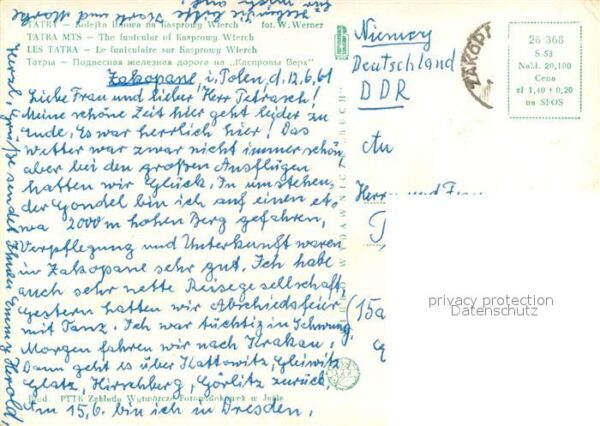 TATRY — Kolejka linowa na Kasprowy Wierch fot. W. Werner
TATRA MTS — The funicular of Kasprowy Wierch
LES TATRA — Le funiculaire sur Kasprowy Wierch
Татры — Подвесная железная дорога на „Каспровы Верх"
Zakopane i. Polen, d. 12.6.61
Liebe Frau und lieber Herr Tetrasch!
Meine schöne Zeit hier geht leider zu
Ende. Es war herrlich hier! Das
Wetter war zwar nicht immer schön,
aber bei den großen Ausflügen
hatten wir Glück. In umstehen-
der Gondel bin ich auf einen et-
wa 2000 m hohen Berg gefahren,
Verpflegung und Unterkunft waren
in Zakopane sehr gut. Ich habe
auch sehr nette Reisegesellschaft,
gestern hatten wir Abschiedsfeier
mit Tanz. Ich war tüchtig in Schwung.
Morgen fahren wir nach Krakau,
Dann geht es über Kattowitz, Gleiwitz
Glatz, Hirschberg, Görlitz zurück,
Am 15.6. bin ich in Dresden,
Herzl. Grüße sendet Ihnen Emmy Herold,
Prod. PTTK Zakłady Wytwórcze Fotopocztówek w Jaśle
Niemcy
Deutschland
DDR
An
Herrn und Frau
(15a
ZAKOP
26-368
S-53
Nakł. 20,100
Cena
zł 1,40 + 0,20
na SFOS
privacy protection
Datenschutz